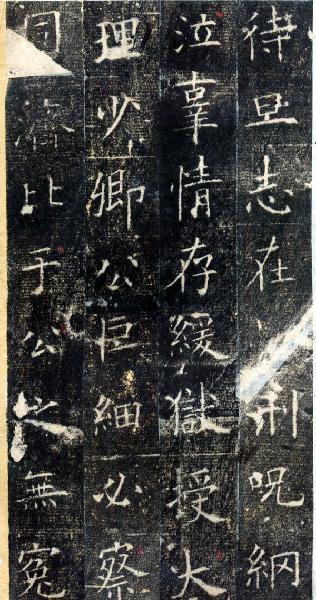 待旦志在刑呪網
泣辜情存緩獄授大
理少卿公巨細必察
同濟比于公之無冤